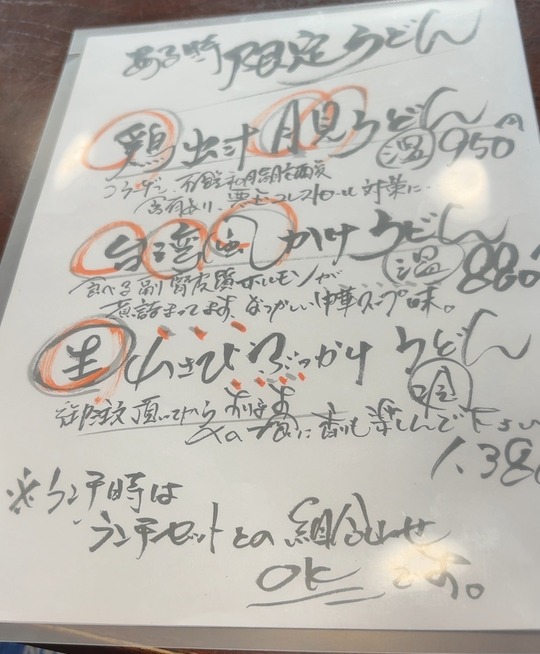 ある時限定うどん
鶏出汁月見うどん 温 950円
コラーゲン、不飽和脂肪酸
富有より、悪玉コレステロール対策に…
台湾風かけうどん 温 880
食べる副腎皮質ホルモンが
煮詰まってます、なつかしい中華スープ味。
生わさびぶっかけうどん
御注文頂いてから おります
に香りも楽しんで下さい
1,380
※ランチ時は
ランチセットとの組合わせ
OKです。